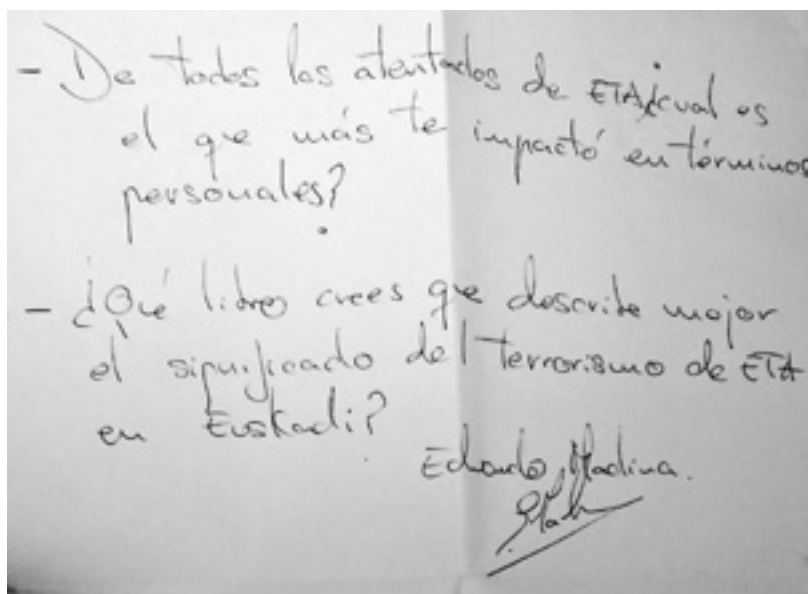 - De todos los atentados de ETA ¿cual es
el que más te impactó en términos
personales?
- ¿Qué libro crees que describe mejor
el significado del terrorismo de ETA
en Euskadi?
Eduardo Madina.